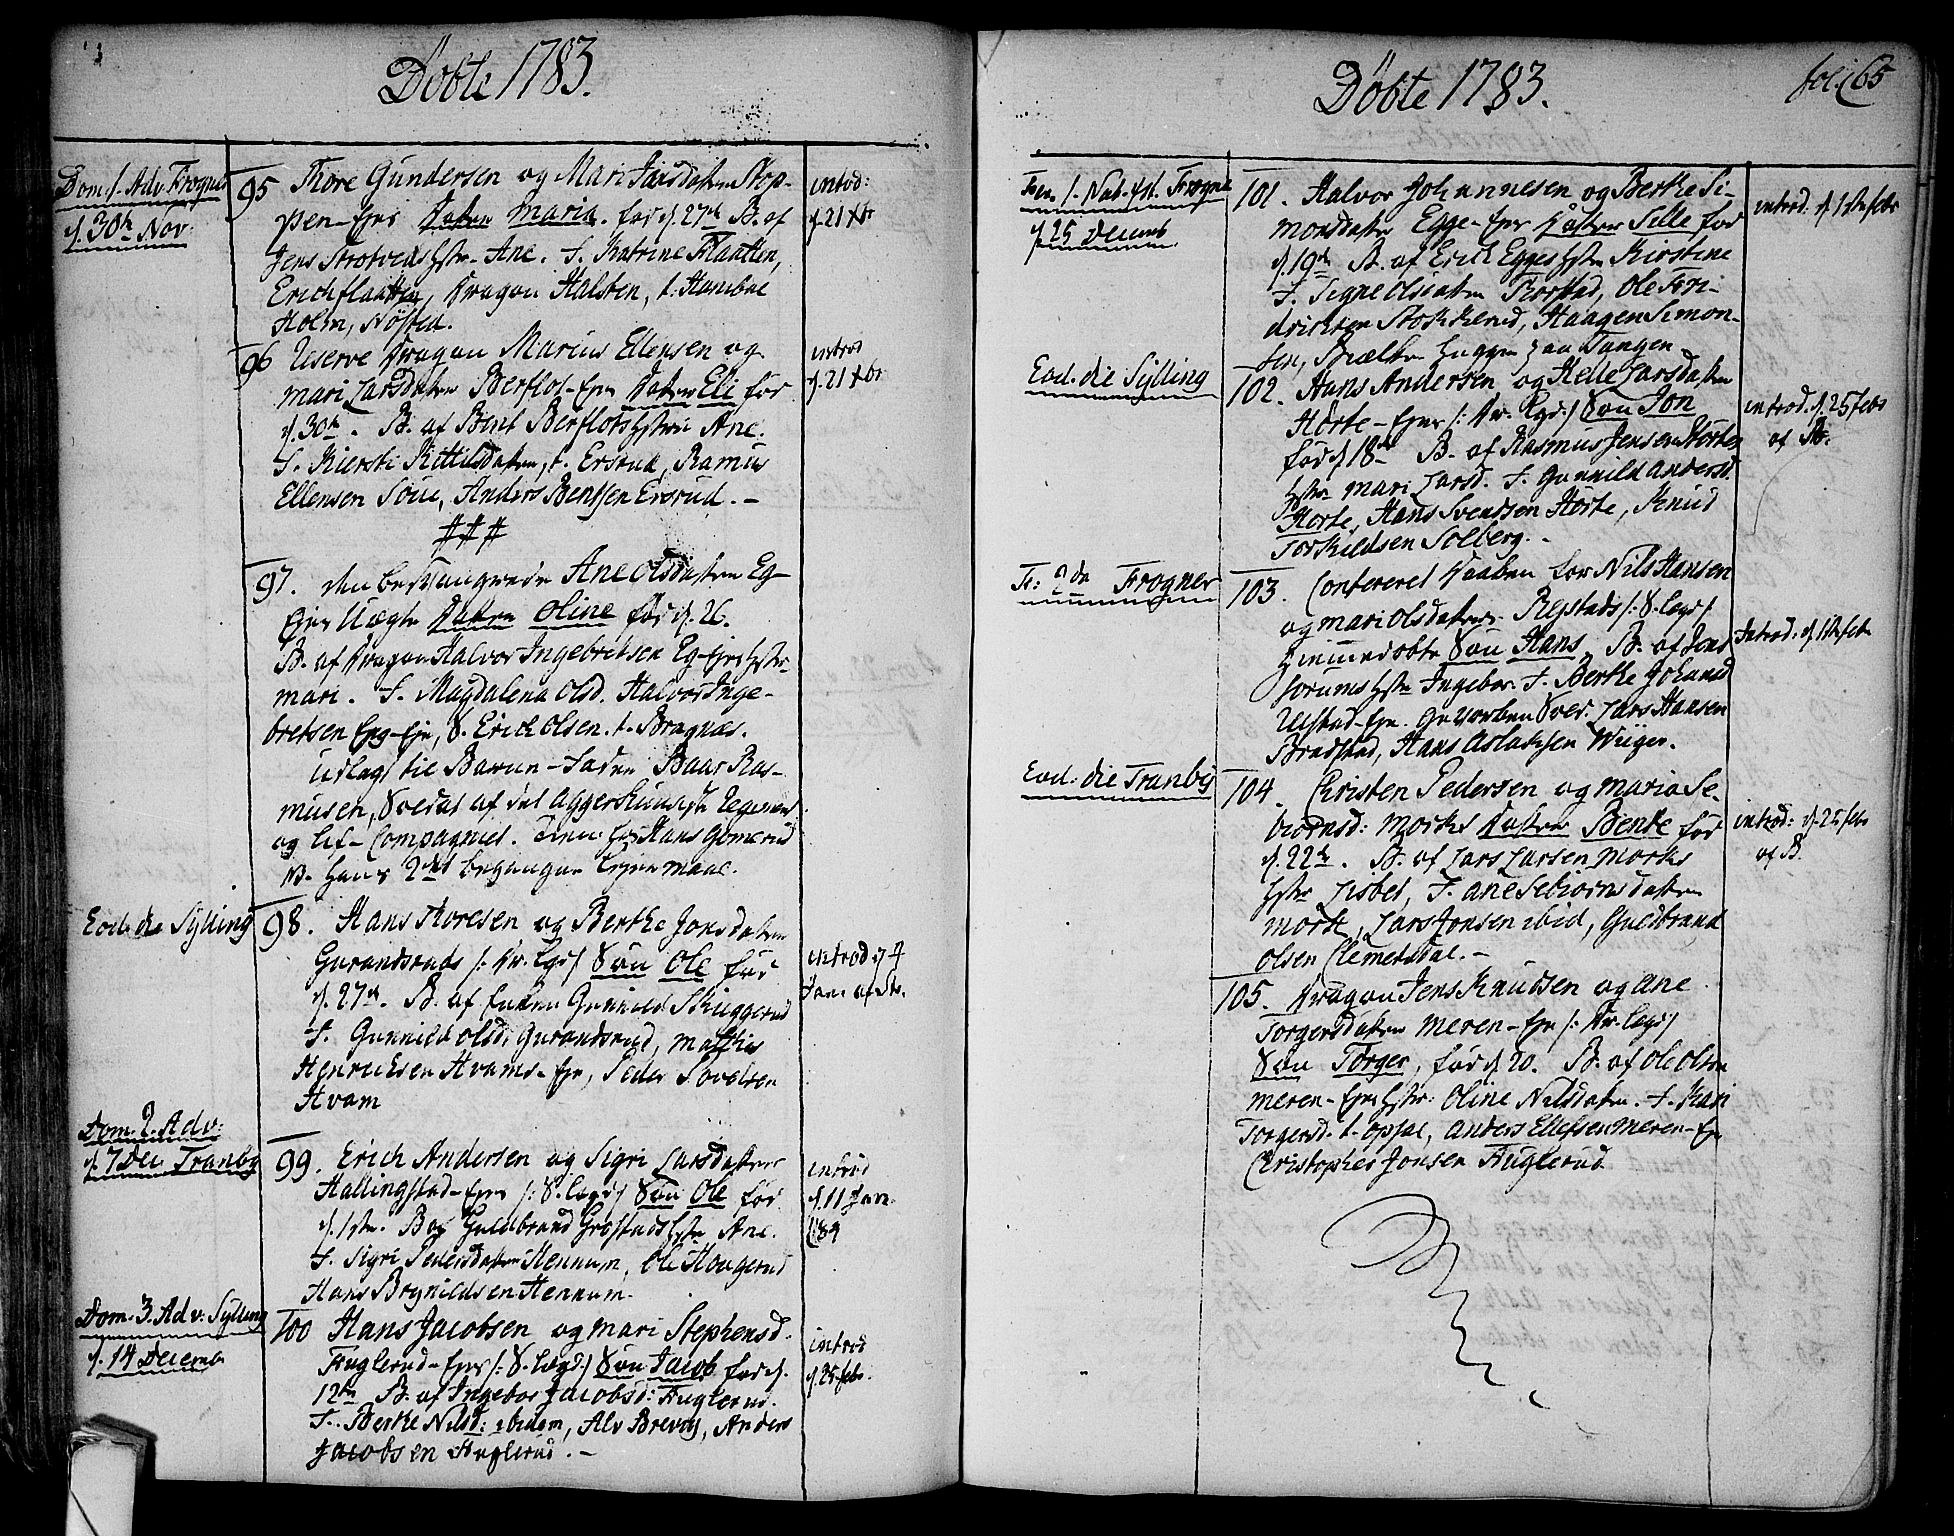 Döbte 1783.
Dom. 1. Adv. Frogner
d. 30th Nov.
95 Thore Gundersen og Mari Larsdatter Stop-
pen-Ejer Datter Maria. fød d. 27de B. af
Jens Strotveds Hstr. Ane. F. Katrine Flaatten,
Erich flaatten, Dragon Halsten, t. Hanibal
Holm, Nösted.
introd:
d. 21 Xbr
96 Reserve Dragon Marius Ellensen og
Mari Larsdatter Berflot-Ejer Datter Eli fød
d. 30th. B. af Bent Berflots Hstru Ane.
F. Kiersti Kittilsdatter, t. Ersrud, Ramus
Ellensen Soue, Anders Bentsen Ersrud. -
introd
d. 21 Xbr
###
97. den Ane Olsdatter Eg-
Ejer Uægte Datter Oline fød d. 26.
B. af Dragon Halvor Ingebretsen Eg-Ejes Hstr.
Mari. F. Magdalena Olsd. Halvor Inge-
bretsen Eg-Eje, S. Erich Olsen. t. Bragnæs.
Udlagt til Barne-Fader Baar Ras-
musen, Soldat af det Aggershusiske Regiment
og Lif-Compagniet. Tien: hos Hans Gomerud
NB. Hans 2det begangne Leyermaal.
Eod. die Sylling
98. Hans Thoresen og Berthe Jonsdatter
Gurandsruds /: Dr. Legd / Søn Ole fød
d. 27de. B. af Enken Gunnild Skuggerud
F. Gunnild Olsd. Gurandsrud, Mathis
Henrichsen Hvams-Eje, Peder Povelsen
Hvam
introd d. 4
Jan. af Str.
Dom. 2. Adv:
d. 7 Dec. Tranby
99. Erich Andersen og Sigri Larsdatter
Hallingstad-Ejer /: S. Legd / Søn Ole fød
d. 1ste. B. af Guldbrand Grøstads Hstr Ane.
F. Sigri Pedersdatter Hennum, Ole Hougerud
Hans Brynildsen Hennum.
introd
d. 11 Jan.
1784
Dom. 3. Adv: Sylling
d. 14 Decemb
100 Hans Jacobsen og Mari Stephensd.
Fuglerud-Ejer /: S. Lægd :/ Søn Jacob fød d.
12te B. af Ingebor Jacobsd: Fuglerud.
F. Berthe Nilsd: ibidem, Alv Brevig, Anders
Jacobsen Fuglerud. -
introd
d. 25 febr.
Döbte 1783.
fol. 65
Fer. 1. Nat. Frogner
d. 25 Decemb
101. Halvor Johannesen og Berthe Si-
monsdatter Egge-Ejer Datter Sille fød
d. 19de B. af Erich Egges Hstr Kirstine
F. Signe Olsdatter Torstad, Ole Fri-
drichsen Stokkerud, Haagen Simon-
sen, Tangen
introd. d. 1ste febr
Eod. die Sylling
102. Hans Andersen og Helle Larsdatter
Horte-Ejer /: Dr. Legd :/ Søn Jon
fød d. 18de B. af Rasmus Jensen Hortes
Hstr Mari Larsd. F. Gunnild Andersd.
Horte, Hans Svendsen Horte, Knud
Torkildsen Solberg. -
introd. d. 25 febr
af Str.
Fer: 2da Frogner
103. Confereret Daaben for Nils Hansen
og Mari Olsdatter Rejstads /: S. Legd /
Hiemmedøbte Søn Hans. B. af Jens
Sorums Hstr Ingebor F. Berthe Johansd
Ulstad-Eje. Lars Hansen
Bradstad, Hans Aslaksen Wiiger.
Introd: d. 1ste feb
Eod: die Tranby
104. Christen Pedersen og Maria Se-
biornsd: Morks Datter Bente fød
d. 22de. B. af Lars Larsen Morks
Hstr Lisbet, F. Ane Sebiornsdatter
Mork, Lars Jonsen ibid, Guldbrand
Olsen Clemetsdal. -
introd: d. 25 febr
af B.
105. Dragon Jens Knudsen og Ane
Torgersdatter Meren-Eje /: Dr. Legd /
Søn Torger, fød d. 20. B. af Ole Olsen
Meren-Ejes Hstr: Oline Nilsdatter. F. Kari
Torgersd. t. Opsal, Anders Ellefsen Meren-Eje
Christopher Jonsen Fuglerud